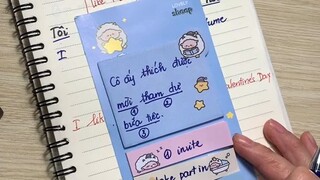 shnap
Tôi
I
Cô ấy thích được
mời tham dự
① ②
bữa tiệc.
③
alentine's Day
I lik
① invite
take part in